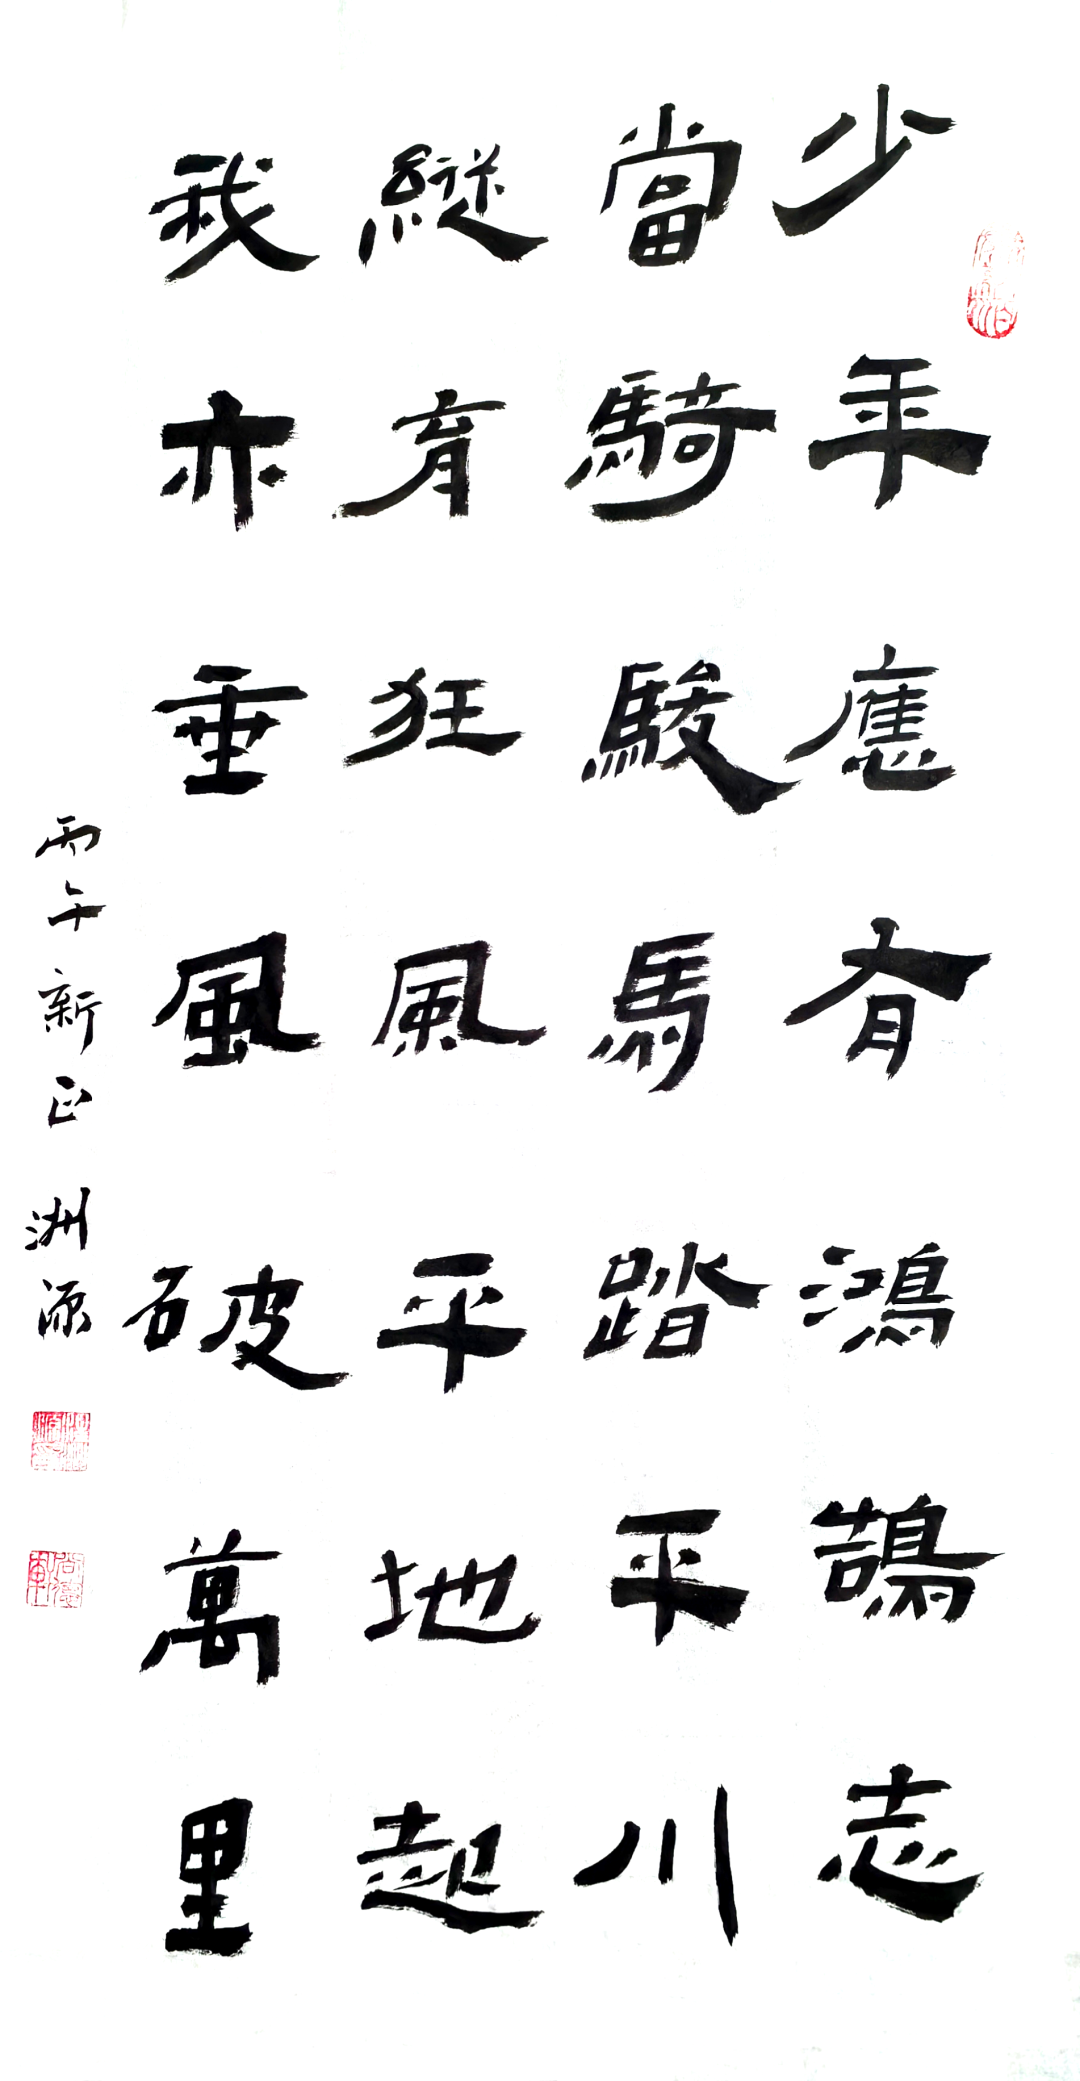 少年應有鴻鵠志
當騎駿馬踏平川
縱有狂風平地起
我亦垂風破萬里
丙午新正 洲源